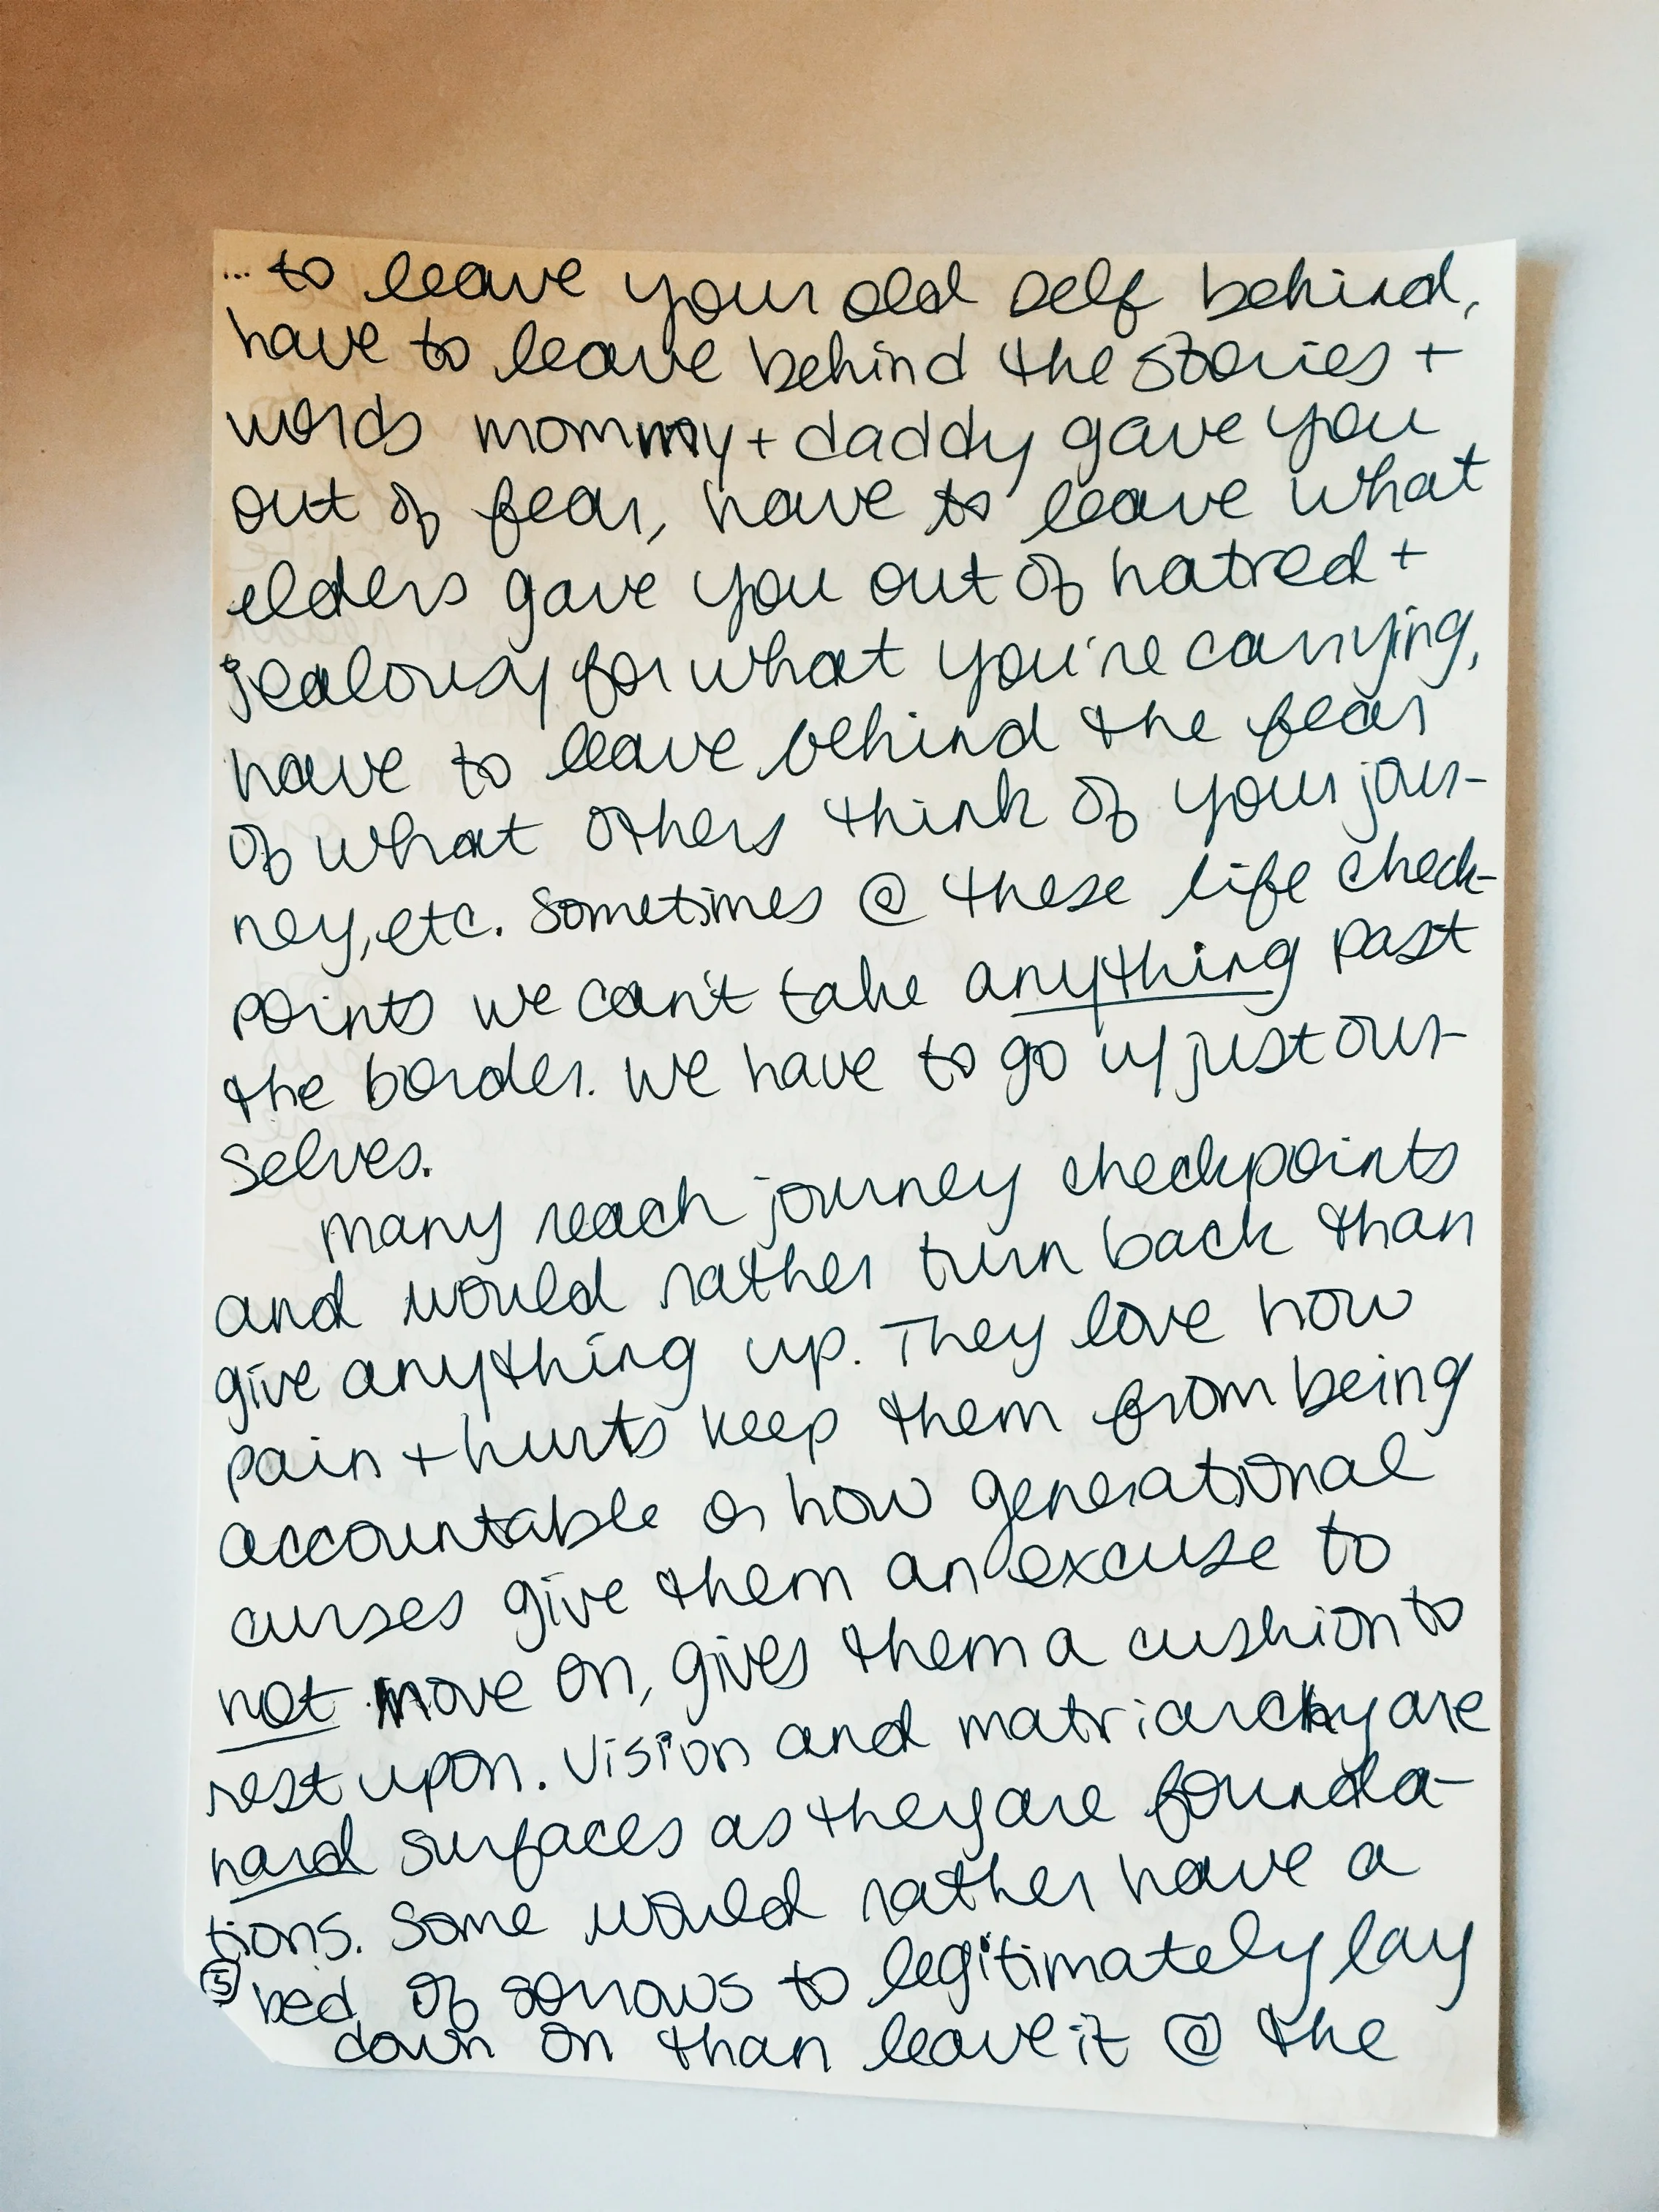 ... to leave your old self behind,
have to leave behind the stories +
words mommy + daddy gave you
out of fear, have to leave what
elders gave you out of hatred +
jealousy for what you're carrying,
have to leave behind the fear
of what others think of your jour-
ney, etc. Sometimes @ these life check-
points we can't take anything past
the border. We have to go w/ just our-
selves.
Many reach journey checkpoints
and would rather turn back than
give anything up. They love how
pain + hurts keep them from being
accountable or how generational
curses give them an excuse to
not move on, gives them a cushion to
rest upon. Vision and matriarchy are
hard surfaces as they are founda-
tions. Some would rather have a
⑤ bed of sorrows to legitimately lay
down on than leave it @ the